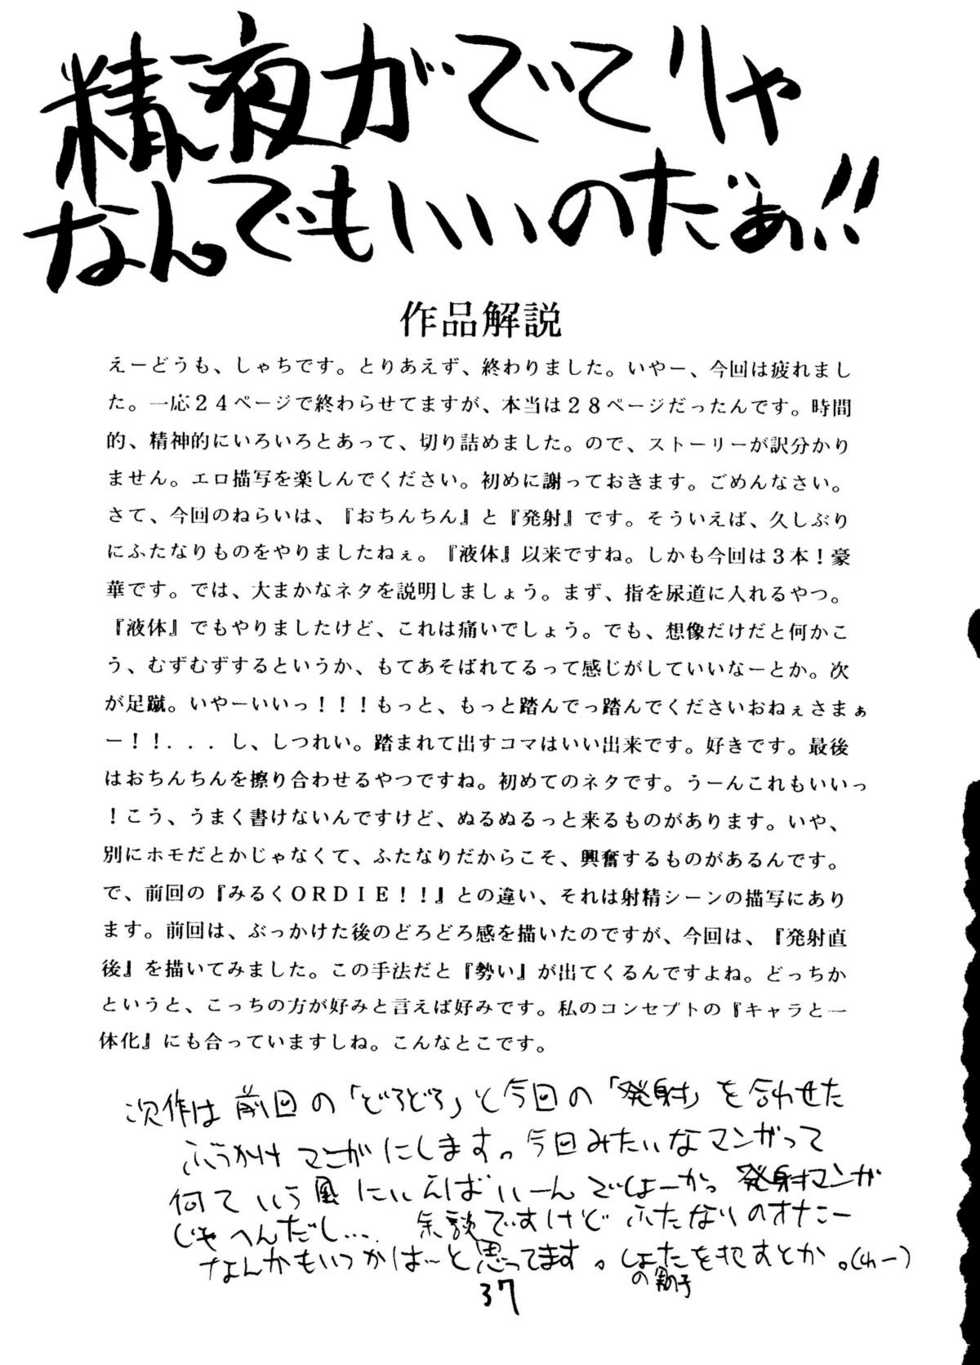 精液がでてりゃ
なんでもいいのだぁ!!
作品解説
えーどうも、しゃちです。とりあえず、終わりました。いやー、今回は疲れまし
た。一応24ページで終わらせてますが、本当は28ページだったんです。時間
的、精神的にいろいろとあって、切り詰めました。ので、ストーリーが訳分かり
ません。エロ描写を楽しんでください。初めに謝っておきます。ごめんなさい。
さて、今回のねらいは、『おちんちん』と『発射』です。そういえば、久しぶり
にふたなりものをやりましたねぇ。『液体』以来ですね。しかも今回は3本!豪
華です。では、大まかなネタを説明しましょう。まず、指を尿道に入れるやつ。
『液体』でもやりましたけど、これは痛いでしょう。でも、想像だけだと何かこ
う、むずむずするというか、もてあそばれてるって感じがしていいなーとか。次
が足蹴。いやーいいっ!!!もっと、もっと踏んでっ踏んでくださいおねぇさまぁ
ー!!...し、しつれい。踏まれて出すコマはいい出来です。好きです。最後
はおちんちんを擦り合わせるやつですね。初めてのネタです。うーんこれもいいっ
!こう、うまく書けないんですけど、ぬるぬるっと来るものがあります。いや、
別にホモだとかじゃなくて、ふたなりだからこそ、興奮するものがあるんです。
で、前回の『みるくORDIE!!』との違い、それは射精シーンの描写にあり
ます。前回は、ぶっかけた後のどろどろ感を描いたのですが、今回は、『発射直
後』を描いてみました。この手法だと『勢い』が出てくるんですよね。どっちか
というと、こっちの方が好みと言えば好みです。私のコンセプトの『キャラと一
体化』にも合っていますしね。こんなとこです。
次作は前回の「どろどろ」と今回の「発射」を合わせた
ぶっかけマンガにします。今回みたいなマンガって
何ていう風にいえばいーんでしょーかっ 発射マンガ
じゃへんだし…
37